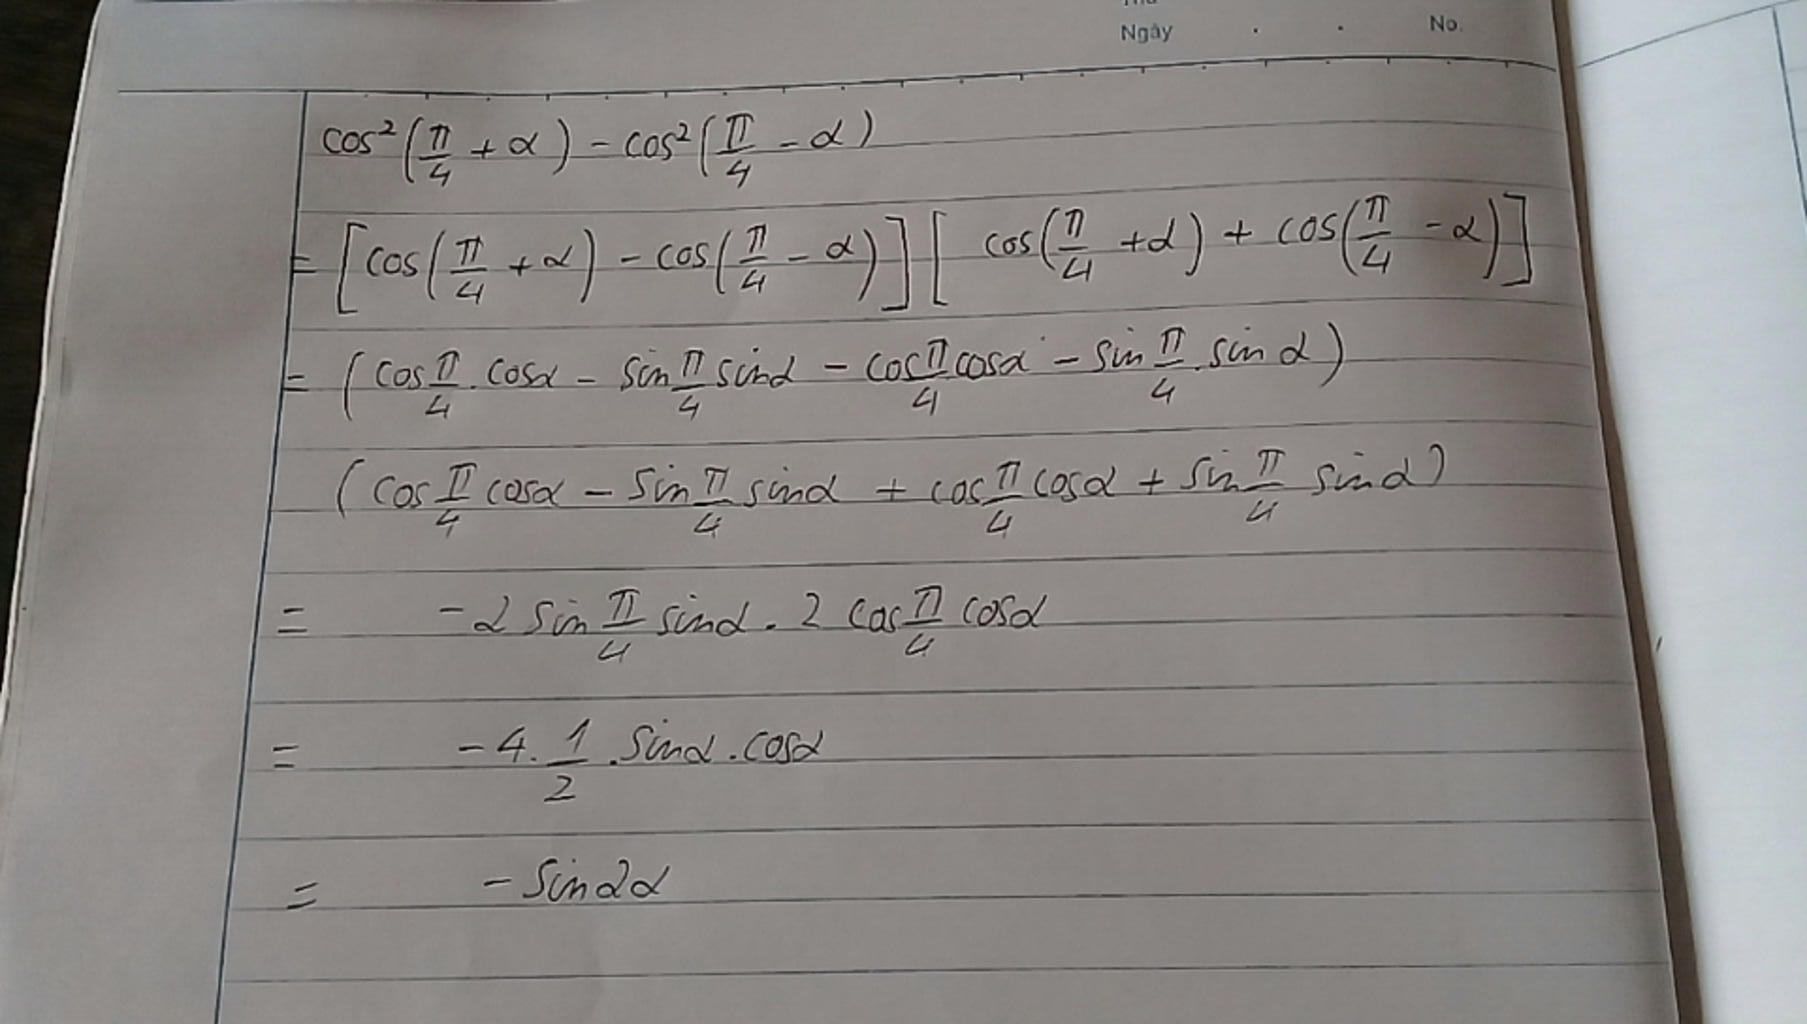 Ngày . . No.
cos²(π/4 + α) - cos²(π/4 - α)
= [cos(π/4 + α) - cos(π/4 - α)][cos(π/4 + α) + cos(π/4 - α)]
= (cos π/4 . cosα - sin π/4 sinα - cos π/4 cosα - sin π/4 . sinα)
(cos π/4 cosα - sin π/4 sinα + cos π/4 cosα + sin π/4 sinα)
= -2 sin π/4 sinα . 2 cos π/4 cosα
= -4 . 1/2 . sinα . cosα
= - sin2α